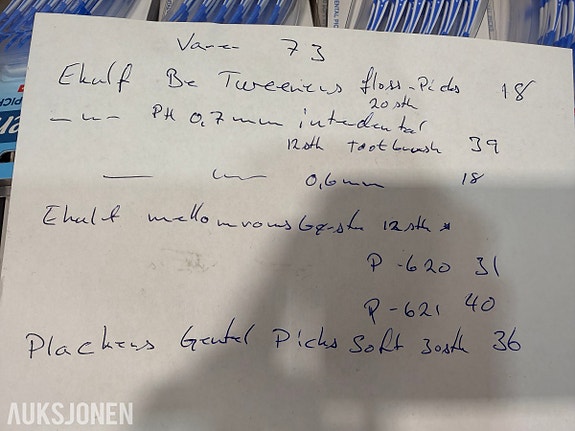 Varer 73
Ekulf Be Tweeners floss-Picks 18
20 stk
—"— PH 0,7mm interdental
12stk toothbrush 39
—"— 0,6mm 18
Ekulf mellomromsbørste 12stk *
P-620 31
P-621 40
Plackers Gentel Picks Soft 30stk 36
AUKSJONEN